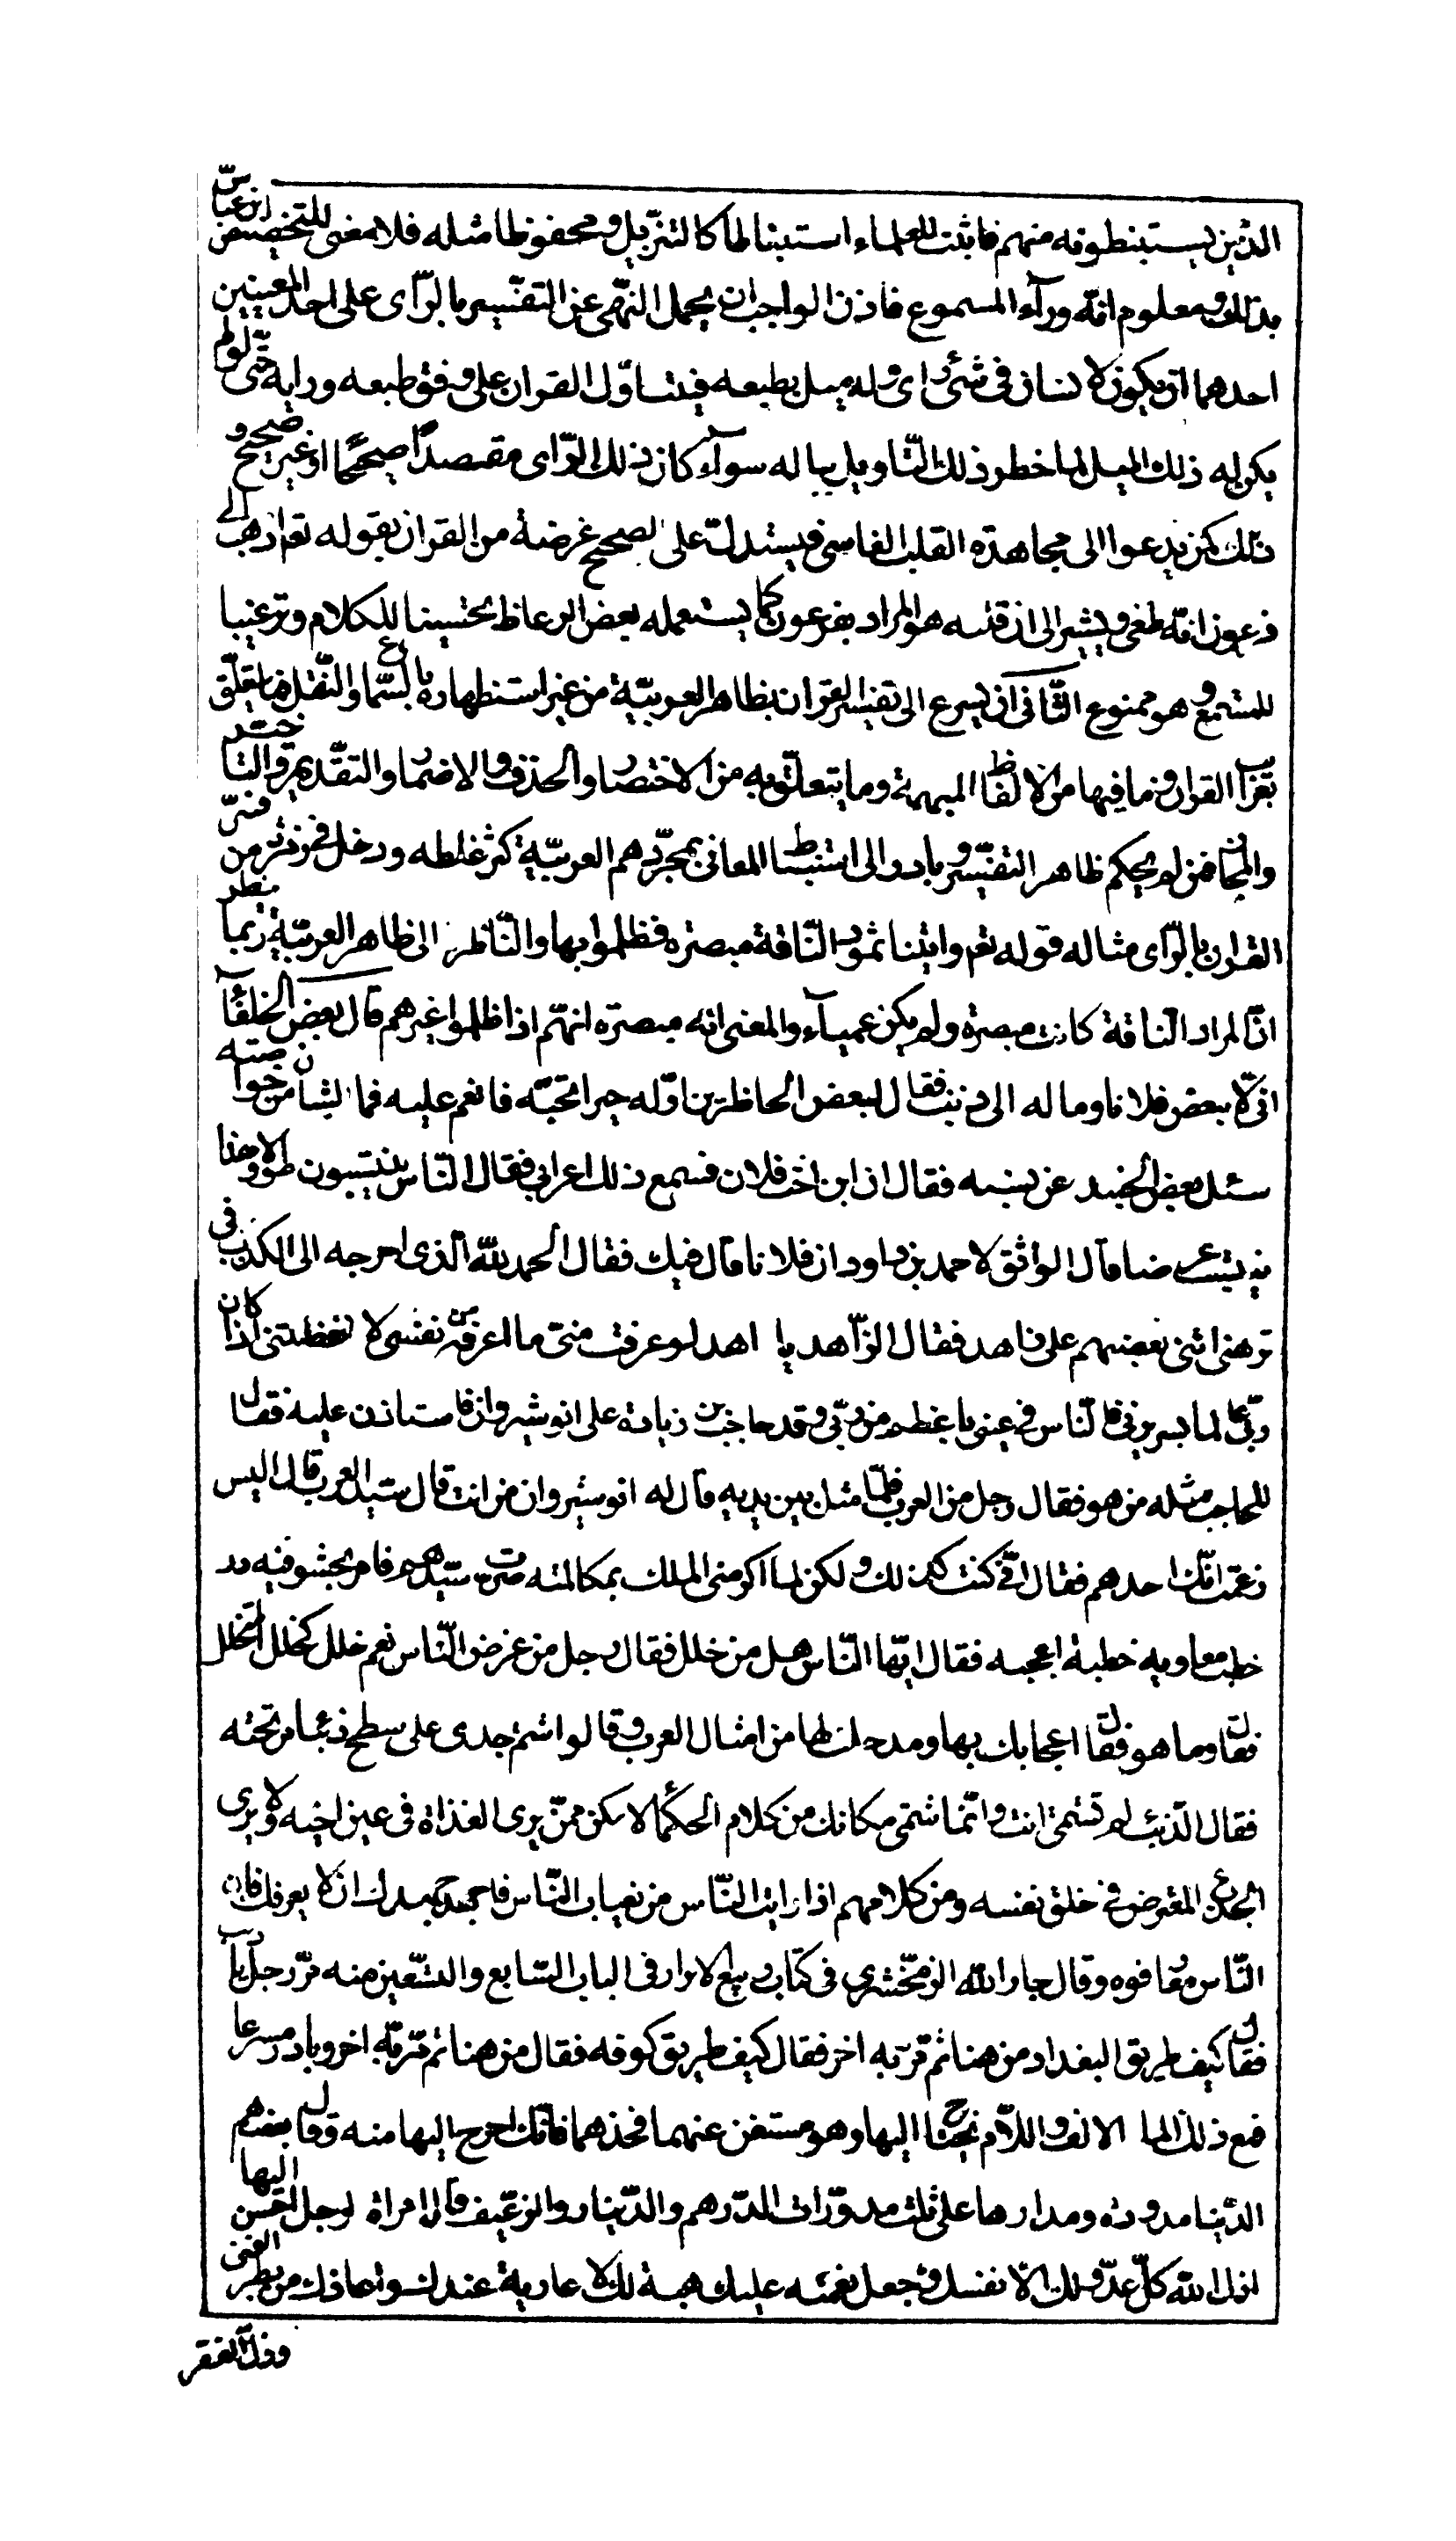 الذين يستبنطونه منهم فاثبت للعلماء استبناطا كالتنزيل ومحفوظا مثله فلا معنى للتخصيص ابن عباس
بذلك ومعلوم انه ورآء المسموع فاذن الواجب ان يحمل النهى عن التفسير بالرأى على احد المعنيين
احدهما ان يكون لانسان فى شئ رأى وله ميل بطبعه فيتاول القران على وفق طبعه ورايه حتى لو لم
يكن له ذلك الميل لما خطر ذلك التاويل بباله سوآء كان ذلك الرأى مقصدا صحيحا او غير صحيح و
ذلك كمن يدعوا الى مجاهدة القلب القاسى فيستدل على الصحيح غرضة من القران بقوله تعم اذهب الى
فرعون انه طغى ويشير الى ان قلبه هو المراد بفرعون كما يستعمله بعض الوعاظ تحسينا للكلام وترغيبا
للمستمع وهو ممنوع الثانى ان يسرع الى تفسير القران بظاهر العربية من غير استظهاره بالسماع والنقل فيما يتعلق
بغرائب القران وما فيها من الالفاظ المبهمة وما يتعلق به من الاختصار والحذف والاضمار والتقديم والتاخير
والمجاز فمن لم يحكم ظاهر التفسير وبادر الى استنباط المعانى بمجرد فهم العربية كثر غلطه ودخل فى زمرة من فسر
القران بالرأى مثاله قوله تعم واتينا ثمود الناقة مبصرة فظلموا بها والناظر الى ظاهر العربية ربما يظن
ان المراد الناقة كانت مبصرة ولم يكن عمياء والمعنى انه مبصرة انهم اذا ظلموا غيرهم قال بعض الخلفآء
انى لابغض فلانا وما له الى ذنب فقال لبعض الحاظرين اوله خيرا تحبه فانعم عليه فما لبث ان من خواصته
سئل بعض الجنيد عن نسبه فقال ان ابن اخت فلان فسمع ذلك اعرابى فقال الناس ينتسبون طولا وهذا
ينتسب عرضا قال الواثق لاحمد بن داود ان فلانا قال فيك فقال الحمد لله الذى احوجه الى الكذب فى
ونزهنى اثنى بعضهم على زاهد فقال الزاهد يا اهد لو عرفت منى ما اعرفه من نفسى لا بغضتنى اذا كان
ربى عالما بسريرتى فما الناس فى عينى باعظم من ربى وقد حاجب بن زيادة على انوشيروان فاستاذن عليه فقال
للحاجب سله من هو فقال رجل من العرب فلما مثل بين يديه قال له انوشيروان من انت قال سيد العرب قال اليس
زعمت انك احدهم فقال انى كنت كذلك ولكن لما اكرمنى الملك بمكالمته صرت سيدهم فامر بحشو فيه در
خطب معاويه خطبة اعجبه فقال ايها الناس هل من خلل فقال رجل من عرض الناس نعم خلل كخلل المنخل
فقال وما هو فقال اعجابك بها ومدحك لها من امثال العرب وقالوا شتم جدى على سطح ذئبا مر تحته
فقال الذئب لم تشتمنى انت وانما شتمنى مكانك من كلام الحكما لا تكن ممن يرى القذاة فى عين اخيه ولا يرى
الجذع المعترض فى خلق نفسه ومن كلامهم اذا رايت الناس من يغتاب الناس فاجهد جهدك ان لا يعرفك فان
الناس معافوه وقال جار الله الزمخشرى فى كتاب ربيع الابرار فى الباب السابع والسعين منه مر رجل باديب
فقال كيف طريق البغداد من هنا ثم مر به اخر فقال كيف طريق كوفه فقال من هنا ثم مر به اخر وبادر مسرعا
فمع ذلك الما الالف واللام تحتاج اليها وهو مستغن عنهما فخذهما فانك احوج اليها منه وقال بعضهم
الدنيا مدوره ومدارها على ثلث مدورات الدرهم والدينار والرغيف قال امراة لرجل احسن اليها
اذل الله كل عدو لك الا نفسك وجعل نعمته عليك هبة لك لا عارية عندك واعاذك من بطر الغنى
وذل الفقر